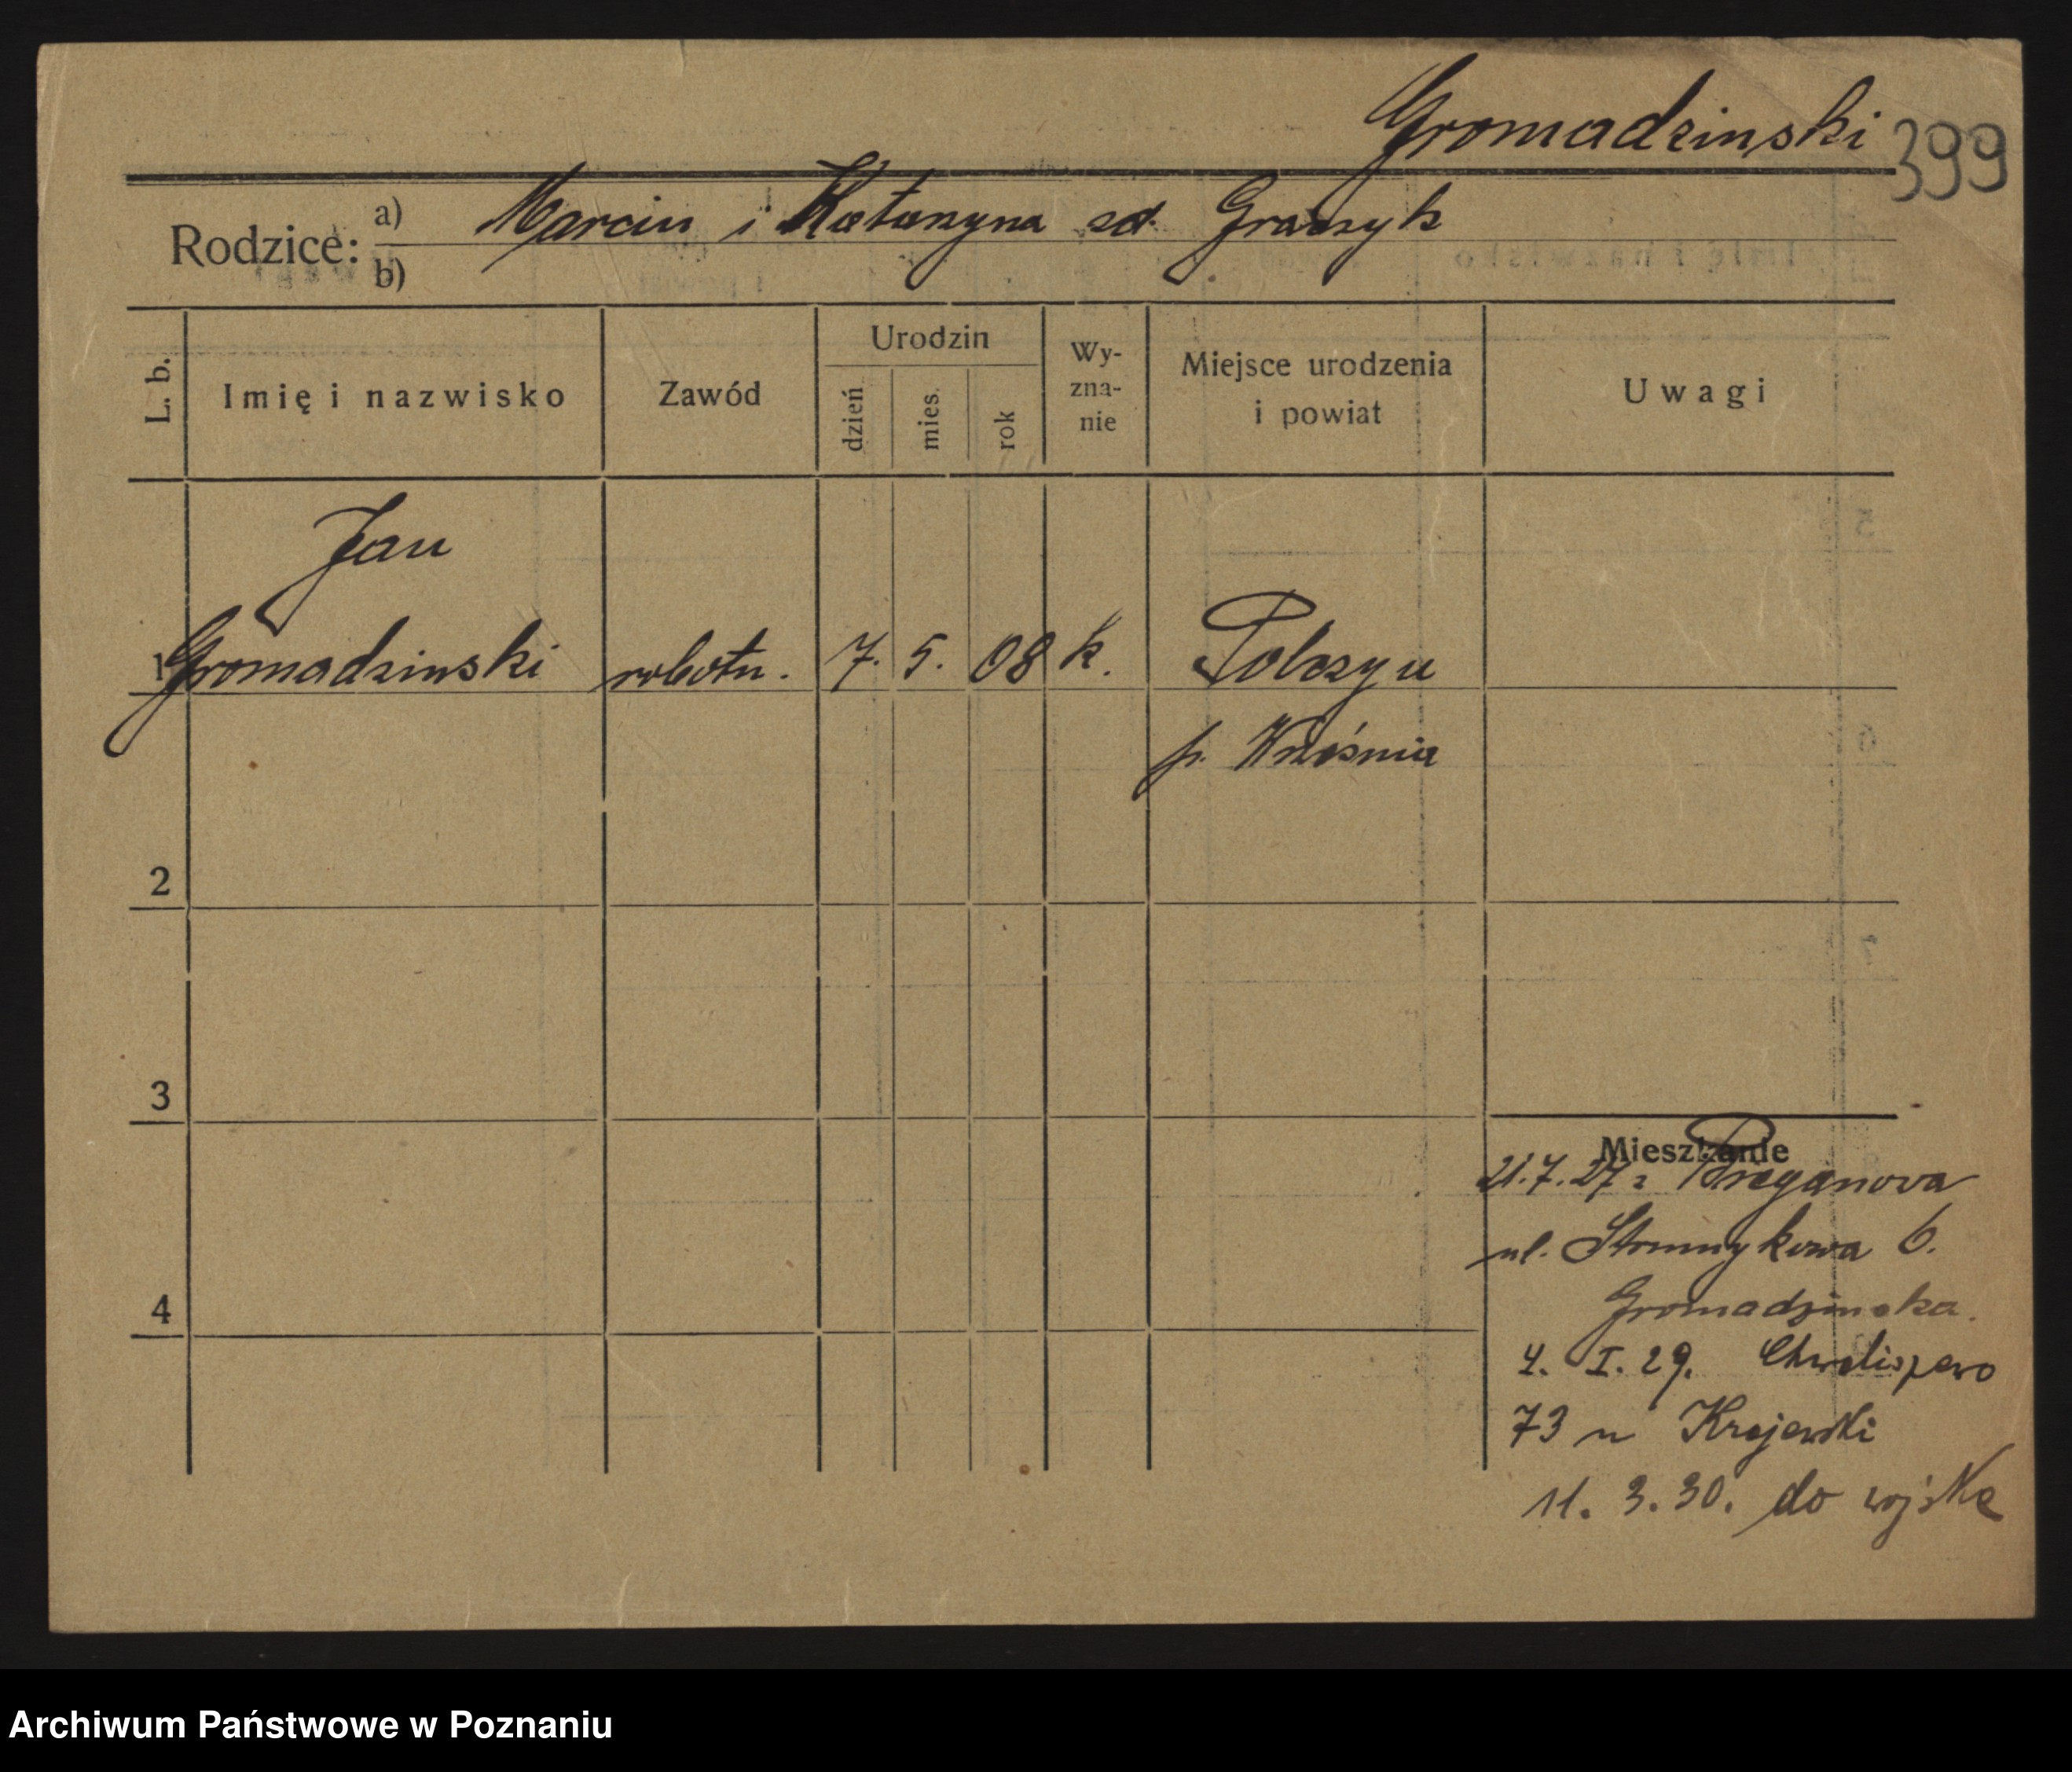 Gromadzinski
399
Rodzice: a) Marcin i Katarzyna zd. Graczyk
b)
L. b.
Imię i nazwisko
Zawód
Urodzin
dzień
mies.
rok
Wy-
zna-
nie
Miejsce urodzenia
i powiat
Uwagi
Jan
1 Gromadzinski robotn. 7. 5. 08 k.
p. Września
2
3
4
Mieszkanie
21.7.27 z
ul. Strumykowa 6.
Gromadzinska.
4. I. 29. Chwaliszewo
73 u Krajewski
11. 3. 30. do wojska
Archiwum Państwowe w Poznaniu